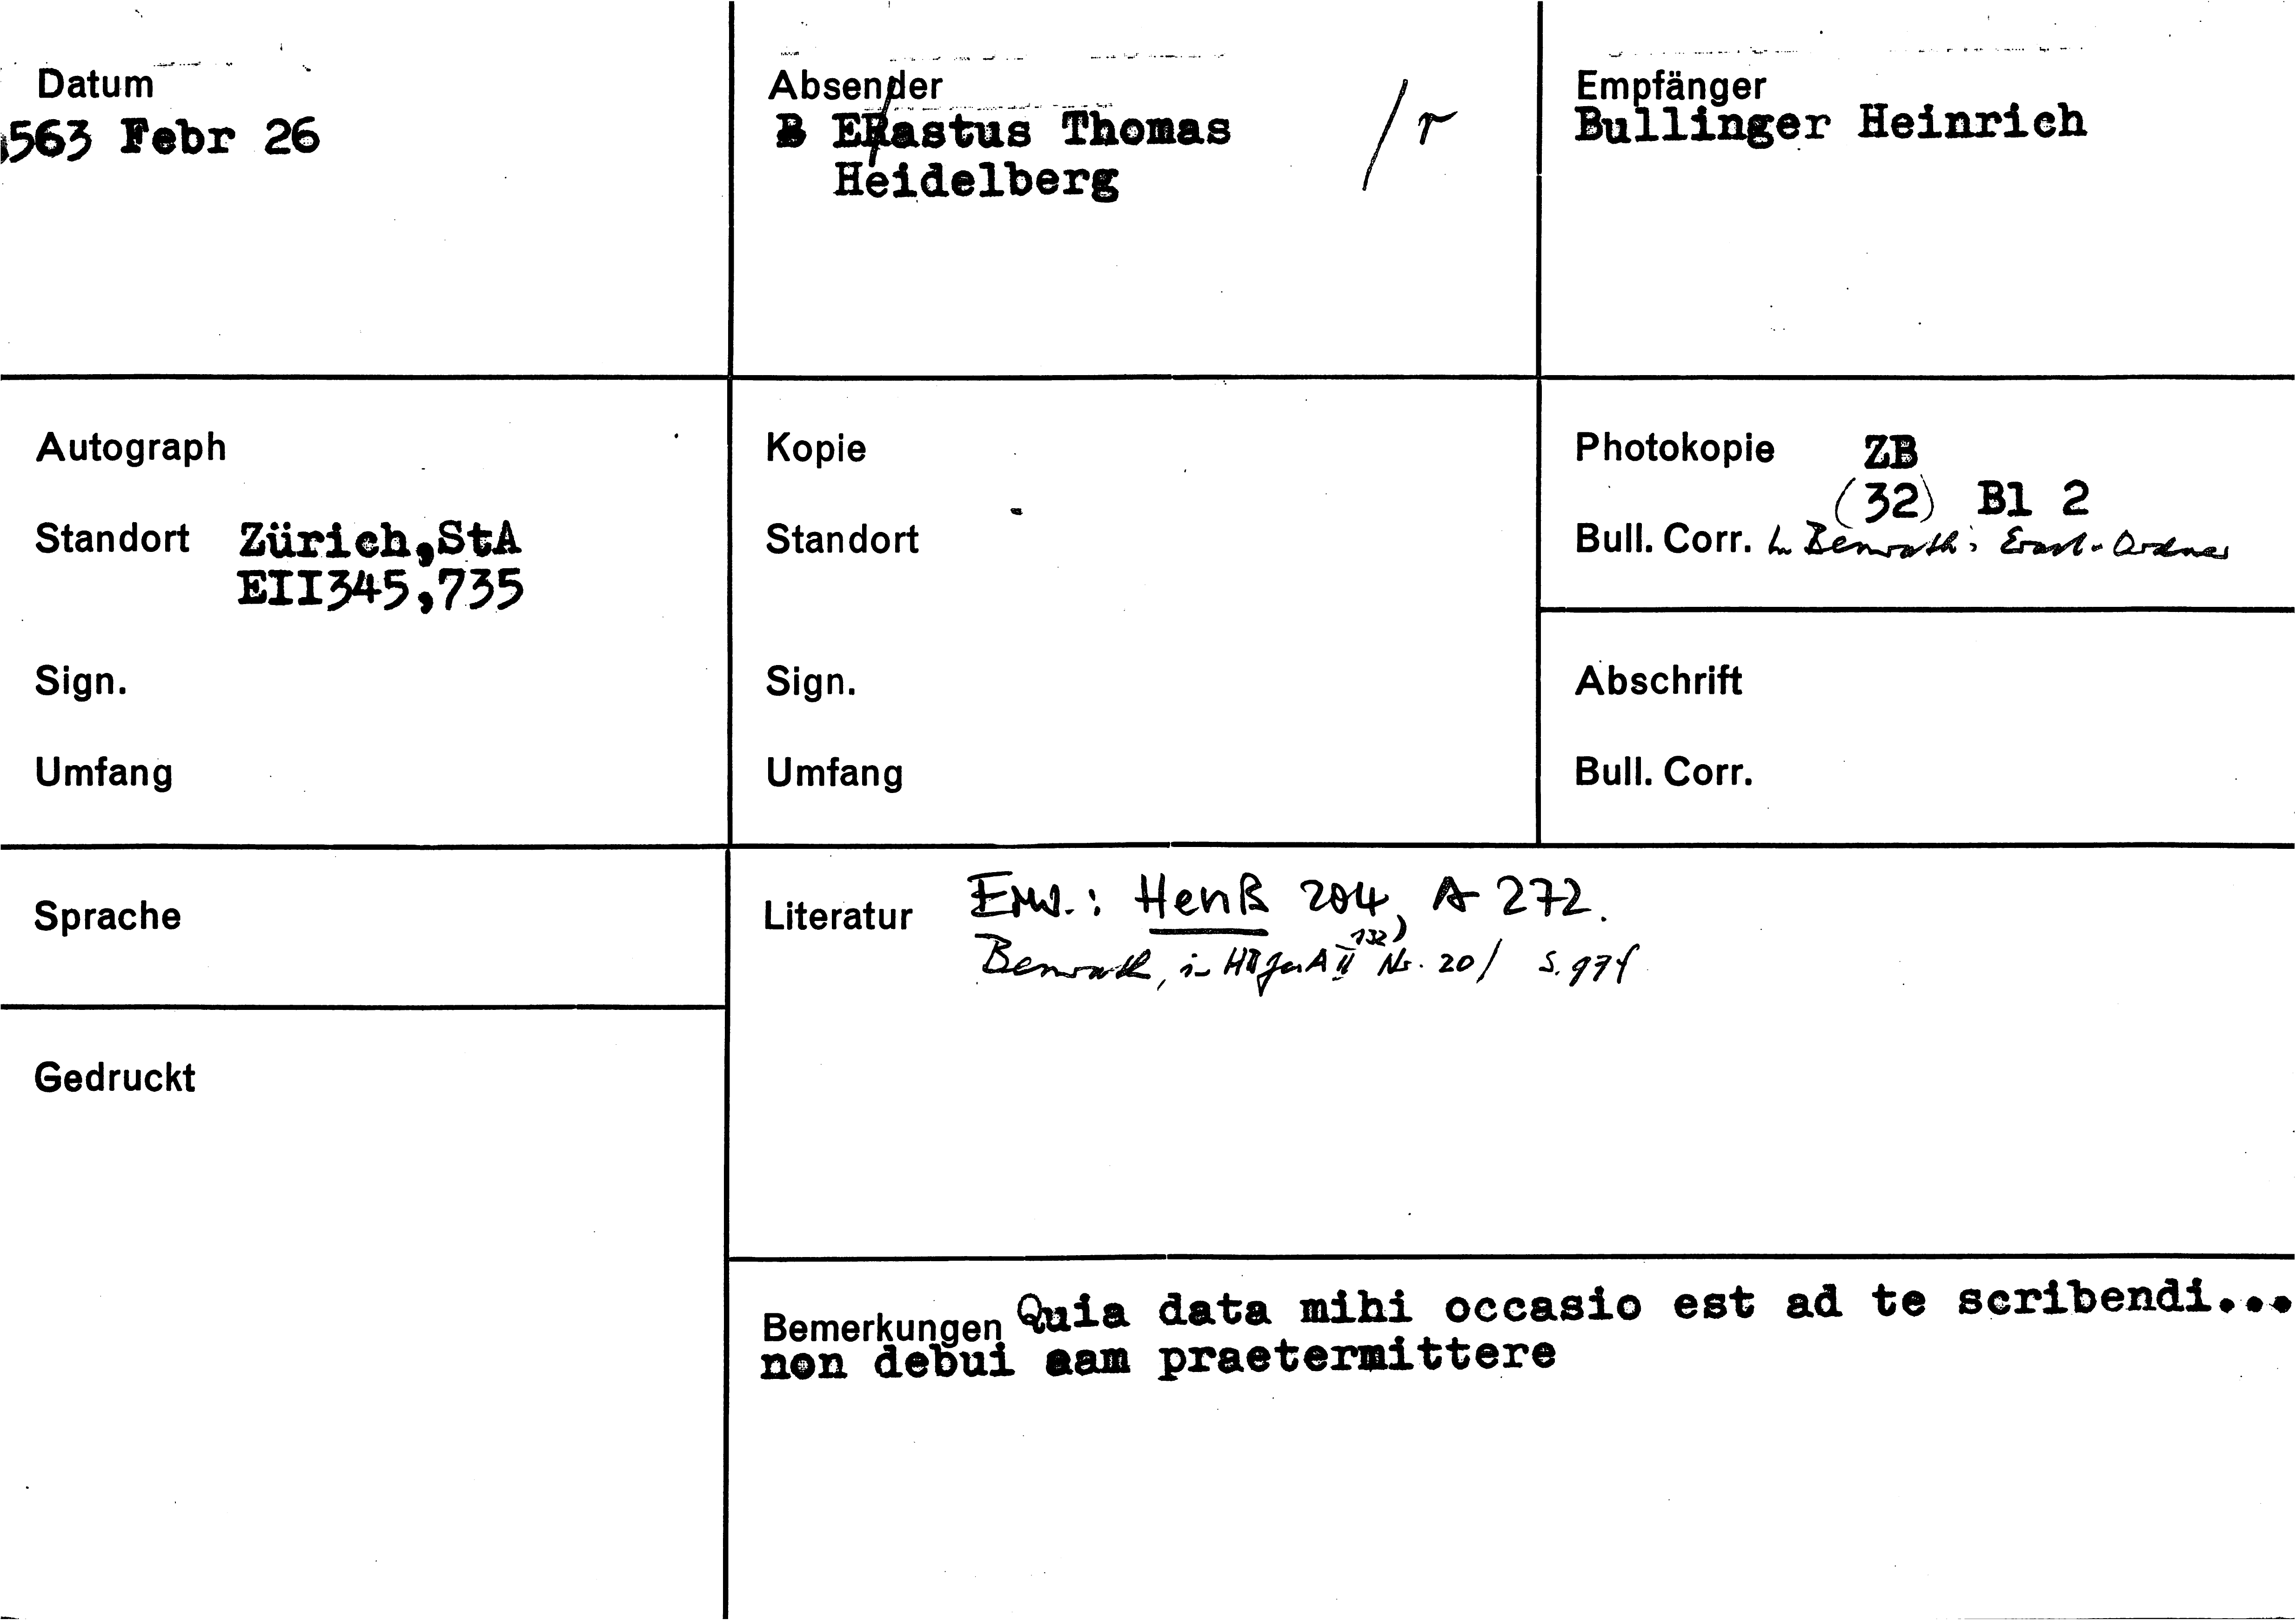 Datum
1563 Febr 26
Absender
B ERastus Thomas / r
Heidelberg
Empfänger
Bullinger Heinrich
Autograph
Standort Zürich,StA
EII345,735
Sign.
Umfang
Kopie
Standort
Sign.
Umfang
Photokopie ZB
(32) Bl 2
Bull. Corr. Benrath: Erast-Ordner
Abschrift
Bull. Corr.
Sprache
Gedruckt
Literatur Erw.: Henß 204, A 272.
Benrath, in II Nr. 20/ 132) S. 97f
Bemerkungen Quia data mihi occasio est ad te scribendi...
non debui eam praetermittere